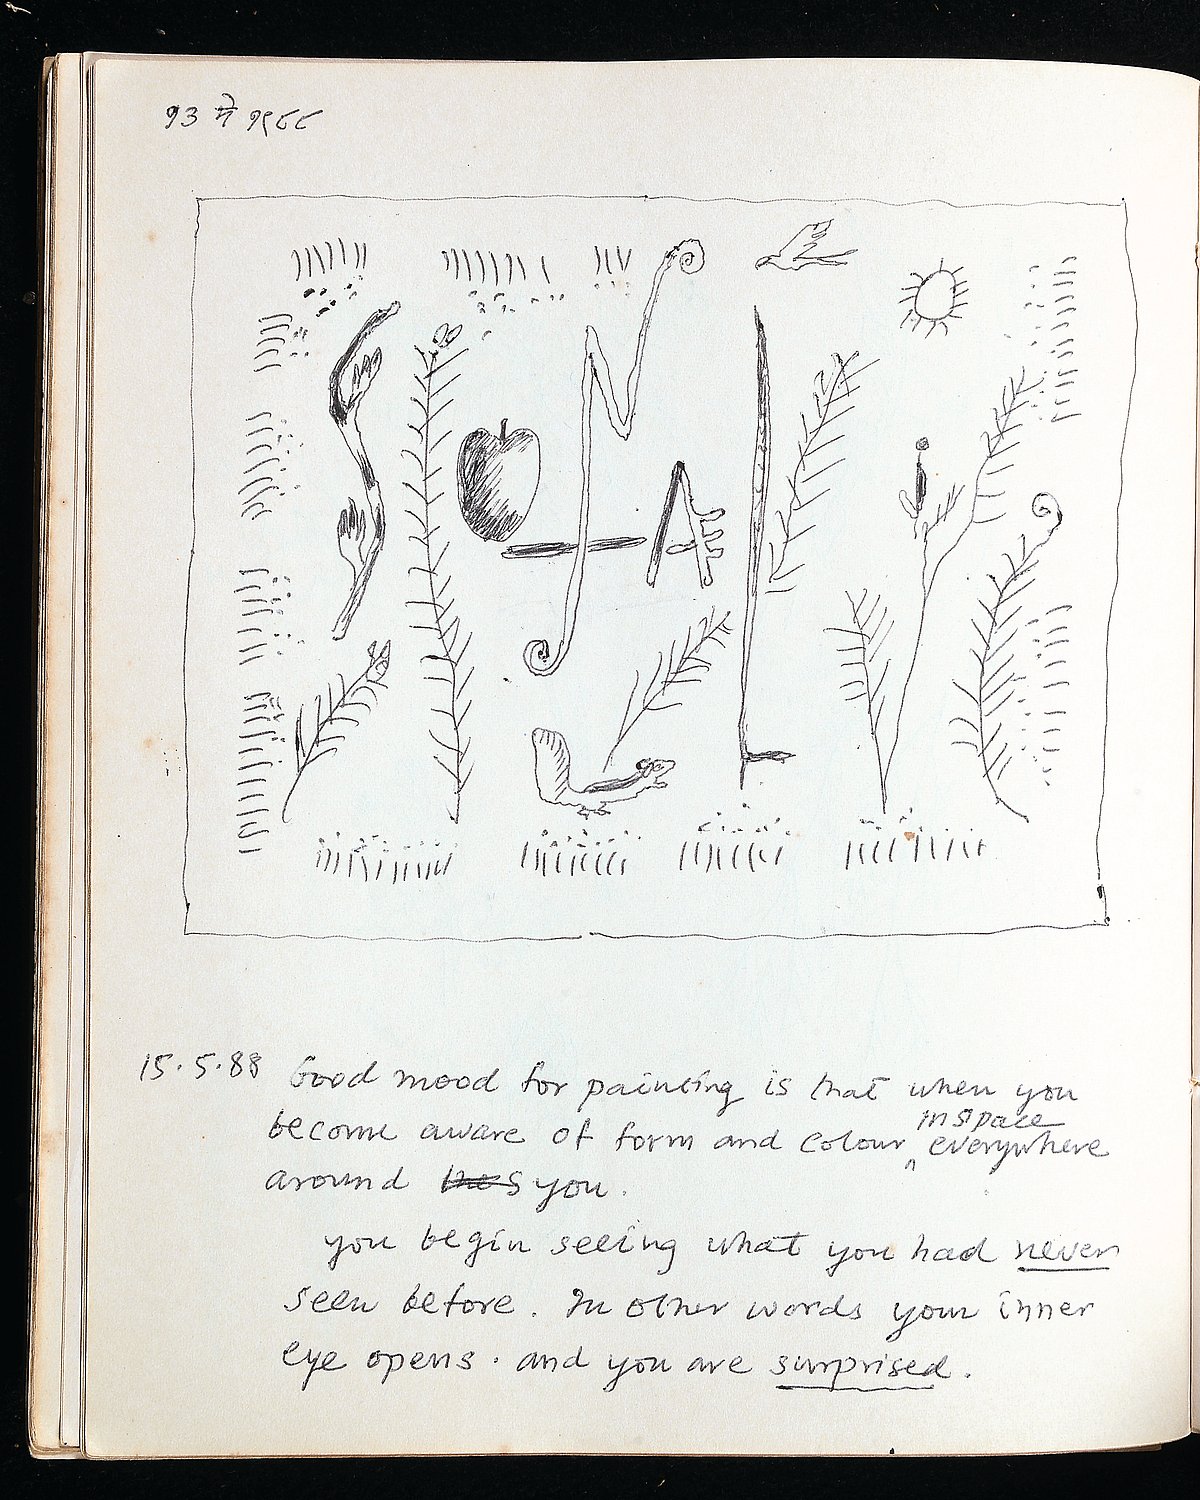 १३ १९८८
SONAL
15.5.88 Good mood for painting is that when you
become aware of form and colour in space everywhere
around you.
you begin seeing what you had never
seen before. In other words your inner
eye opens. and you are surprised.